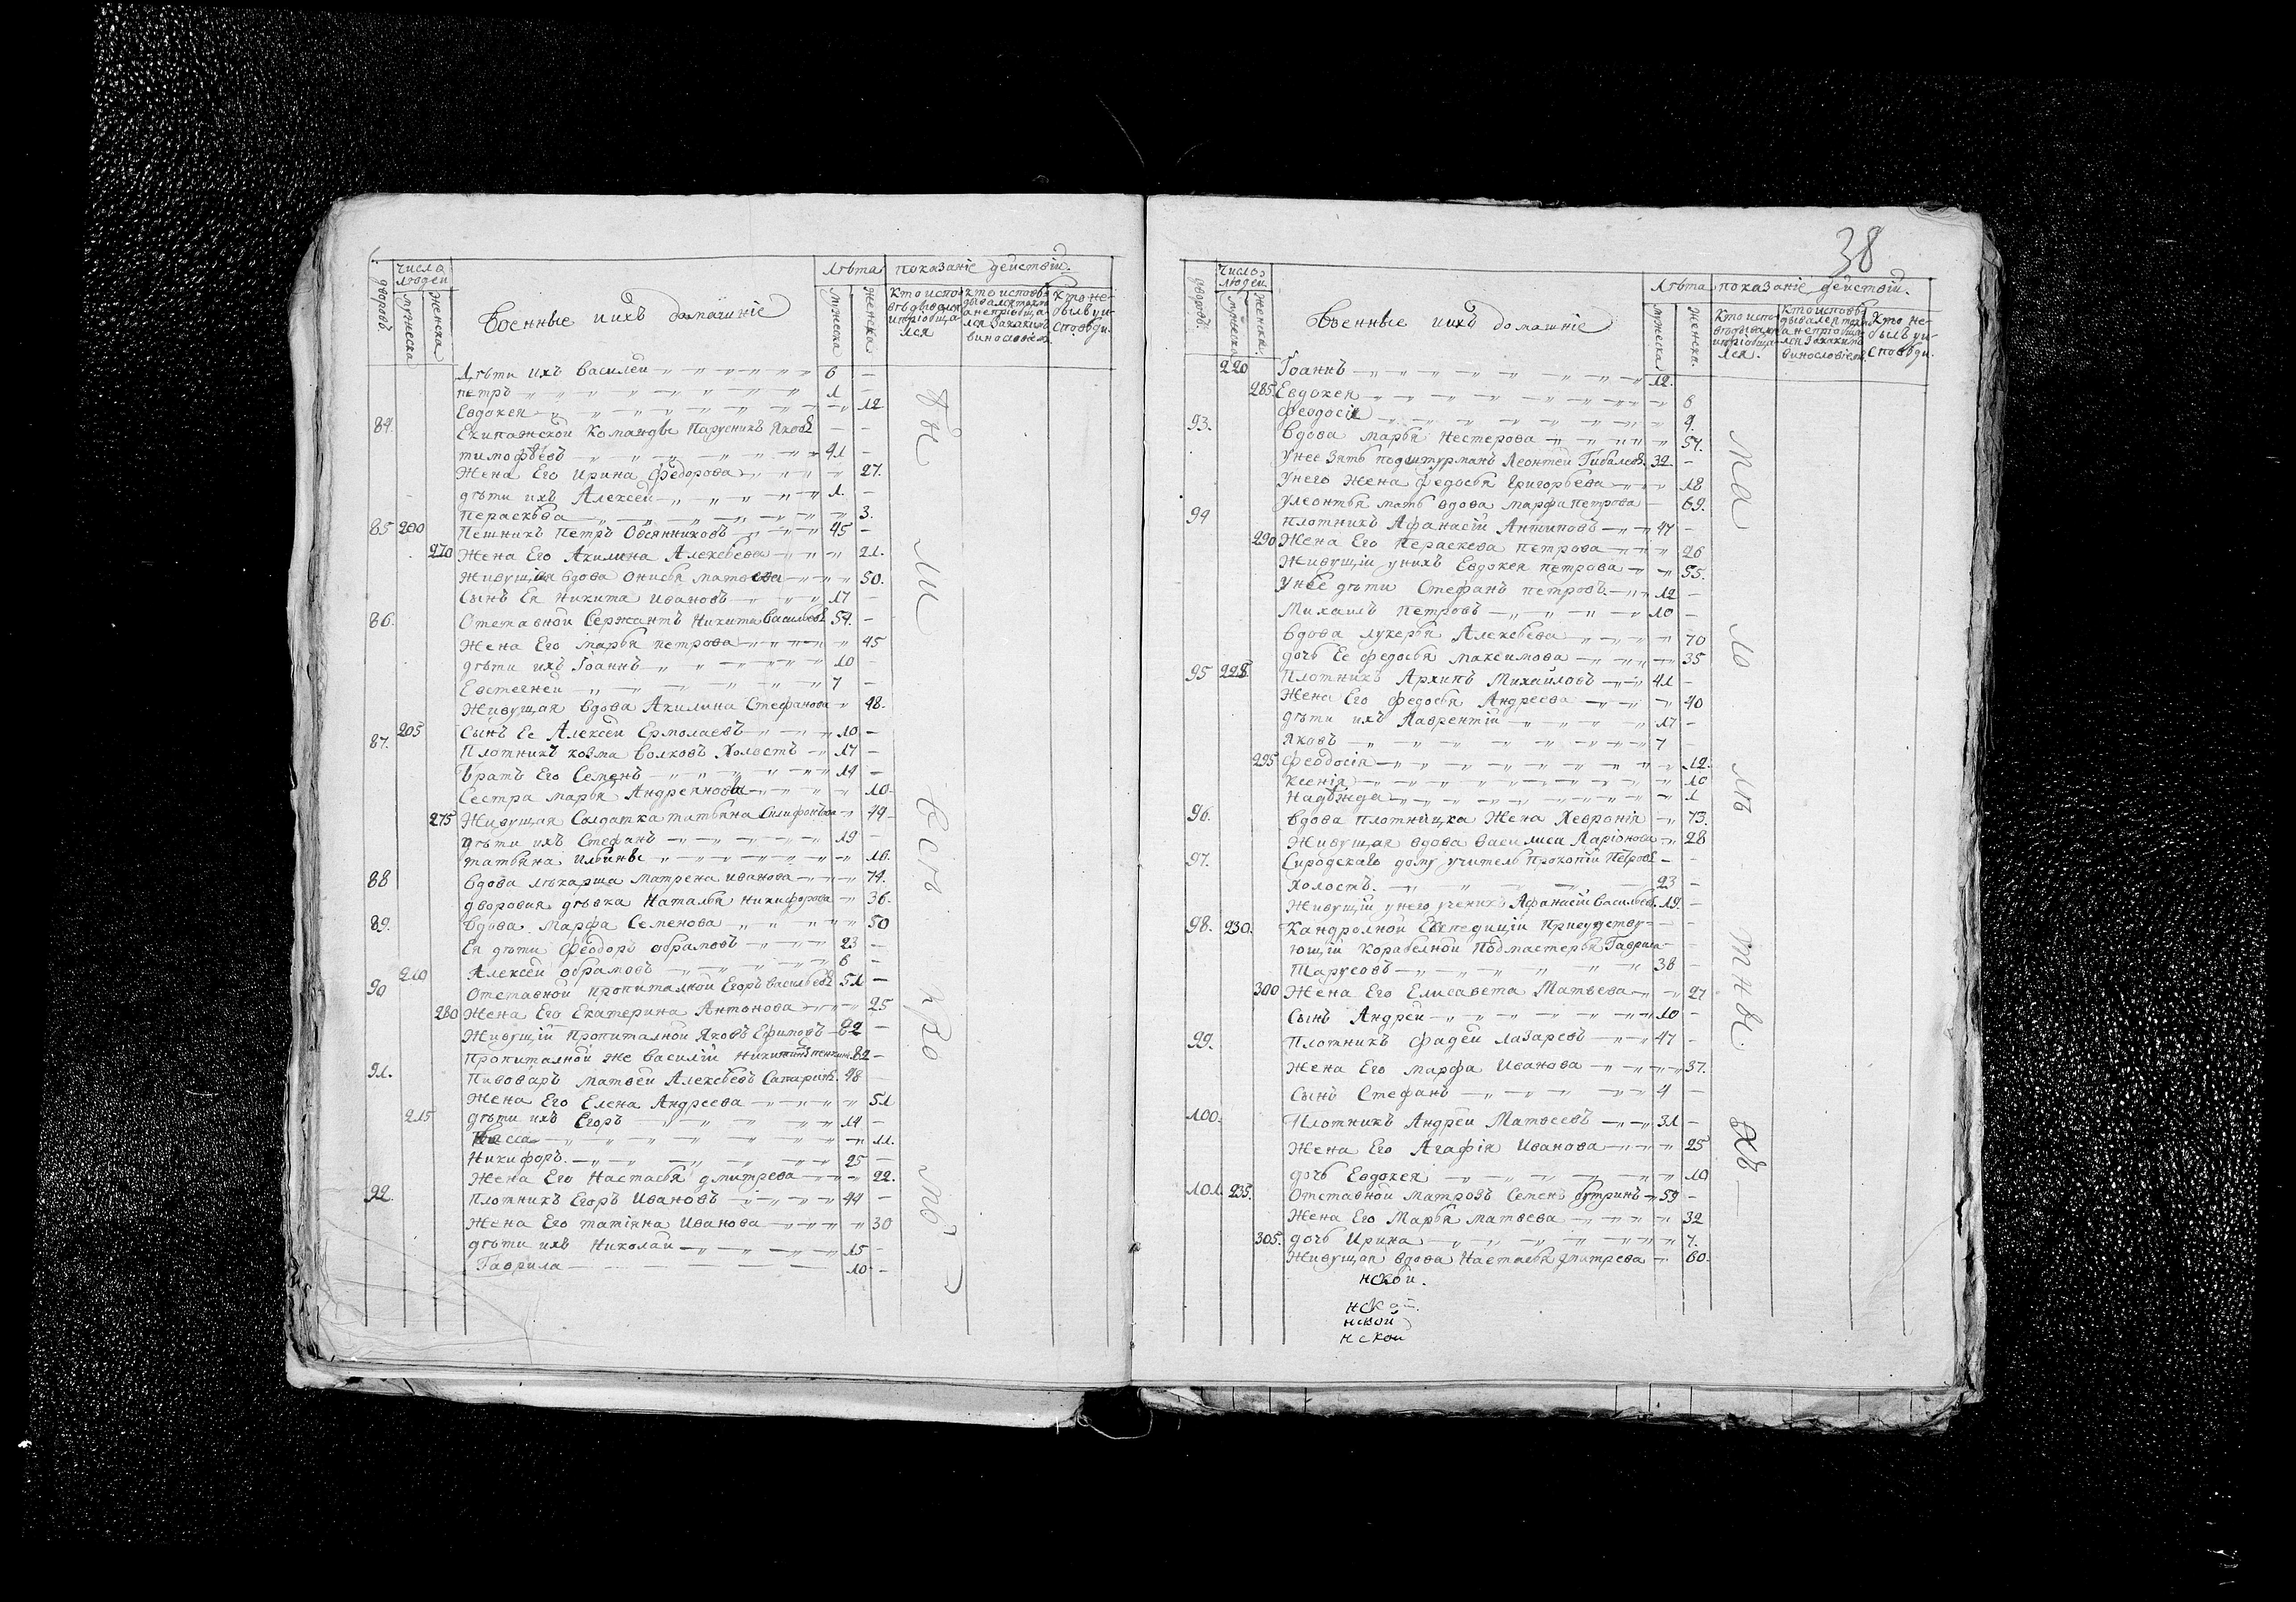 38
дворовъ. Числа людей мужеска женска Военные ихъ домашніе Лѣта мужеска женска показаніе действій.
Кто испо- вѣдывался и пріобща- лся
кто исповѣ- дывался токмо а непріобща- лся и за какимъ винословіем.
Кто не- былъ уи- сповѣди.
Дѣти ихъ Василей 6 -
петръ 1 -
Евдокея - 12
84. Екипажской Команды Парусникъ Яковъ - -
тимофѣевъ 41 -
Жена Его Ирина Федорова - 27.
дѣти ихъ Алексей 1. -
пераскѣва - 3.
85 200 Пешникъ Петръ Овсянниковъ 45 -
270 Жена Его Акилина Алексѣева - 21.
Живущая вдова Онисья матвеева - 50.
Сынъ Ея Никита Ивановъ 17 -
86. Отставной Сержантъ Никита Васильевъ 54. -
Жена Его марья петрова - 45
дѣти ихъ Іоаннъ 10 -
Евстегней 7 -
Живущая вдова Акилина Стефанова - 48.
205 Сынъ Ее Алексей Ермолаевъ 10 -
87. Плотникъ козма Волковъ Холостъ 17 -
братъ Его Семенъ 14 -
Сестра марья Андреянова - 10.
275 Живущая Солдатка татьяна - 49
дѣти ихъ Стефанъ 19 -
татьяна Ильины - 16.
88 вдова лѣкарша Матрена иванова - 74.
дворовая дѣвка Наталья никифорова - 36.
89. вдова Марфа Семенова - 50
Ея дѣти Феодоръ обрамовъ 23 -
210 Алексей обрамовъ 6 -
90 Отставной пропиталной Егоръ Васильевъ 51 -
280 Жена Его Екатерина Антонова - 25
Живущій Пропиталной Яковъ Ефимовъ 82 -
Пропиталной же василій 82 -
91. Пивоваръ матвей Алексѣевъ 48 -
Жена Его Елена Андреева - 51
215 дѣти ихъ Егоръ 14 -
- 11.
Никифоръ 25 -
Жена Его Настасья дмитрева - 22.
92. Плотникъ Егоръ Ивановъ 44 -
Жена Его татіяна Иванова - 30
дѣти ихъ Николай 15 -
Гаврила 10 -
дворовъ. Число людей. мужеска женска. Военные ихъ домашніе Лѣта мужеска женска. показаніе действій.
Кто испо- вѣдывался и пріобща- лся.
Кто исповѣ- дывался токмо а непріобща- лся и за какимъ винословіем.
Кто не- былъ уи- сповѣди.
220 Іоаннъ 12. -
285 Евдокея - 8
Феодосія - 9.
93. вдова марья Нестерова - 57.
Унее зять подштурманъ Леонтей 32. -
Унего Жена федосья Григорьева - 18
Улеонтья мать вдова марфа петрова - 69.
94 плотникъ Афанасій Антиповъ 47 -
290 Жена Его Пераскева петрова - 26
Живущій унихъ Евдокея петрова - 55.
Унее дѣти Стефанъ петровъ 12 -
Михаилъ Петровъ 10 -
вдова лукерья Алексѣева - 70
дочь Ее федосья максимова - 35
95 225. Плотникъ Архипъ Михайловъ 41 -
Жена Его федосья Андреева - 40
дѣти ихъ Лаврентій 17 -
Яковъ 7 -
295 Феодосія - 12.
Ксенія - 10
Надѣжда - 1
96. вдова плотницка Жена Хевронія - 73.
Живущая вдова Василиса Ларіонова - 28
97. Сиродскаго дому учитель Прокопій Петровъ - -
Холостъ. 23 -
Живущій унего ученикъ Афанасій Васильевъ. 19. -
98. 230. Кандролной Експедицій Присудству- - -
ющій Корабелной Подмастерья Гаврила - -
Шарусовъ 38 -
300 Жена Его Елисавета Матвеева - 27
Сынъ Андрей 10 -
99. Плотникъ Фадей Лазаревъ 47 -
Жена Его марфа Иванова - 37.
Сынъ Стефанъ 4 -
100. Плотникъ Андрей Матвеевъ 31 -
Жена Его Агафія Иванова - 25
дочь Евдокея - 10
101. 235. Отставной Матрозъ Семенъ бутринъ 59 -
Жена Его Марья матвеева - 32
305. дочь Ирина - 7.
Живущая вдова Настасья дмитрева - 60.
нской.
нской
нской